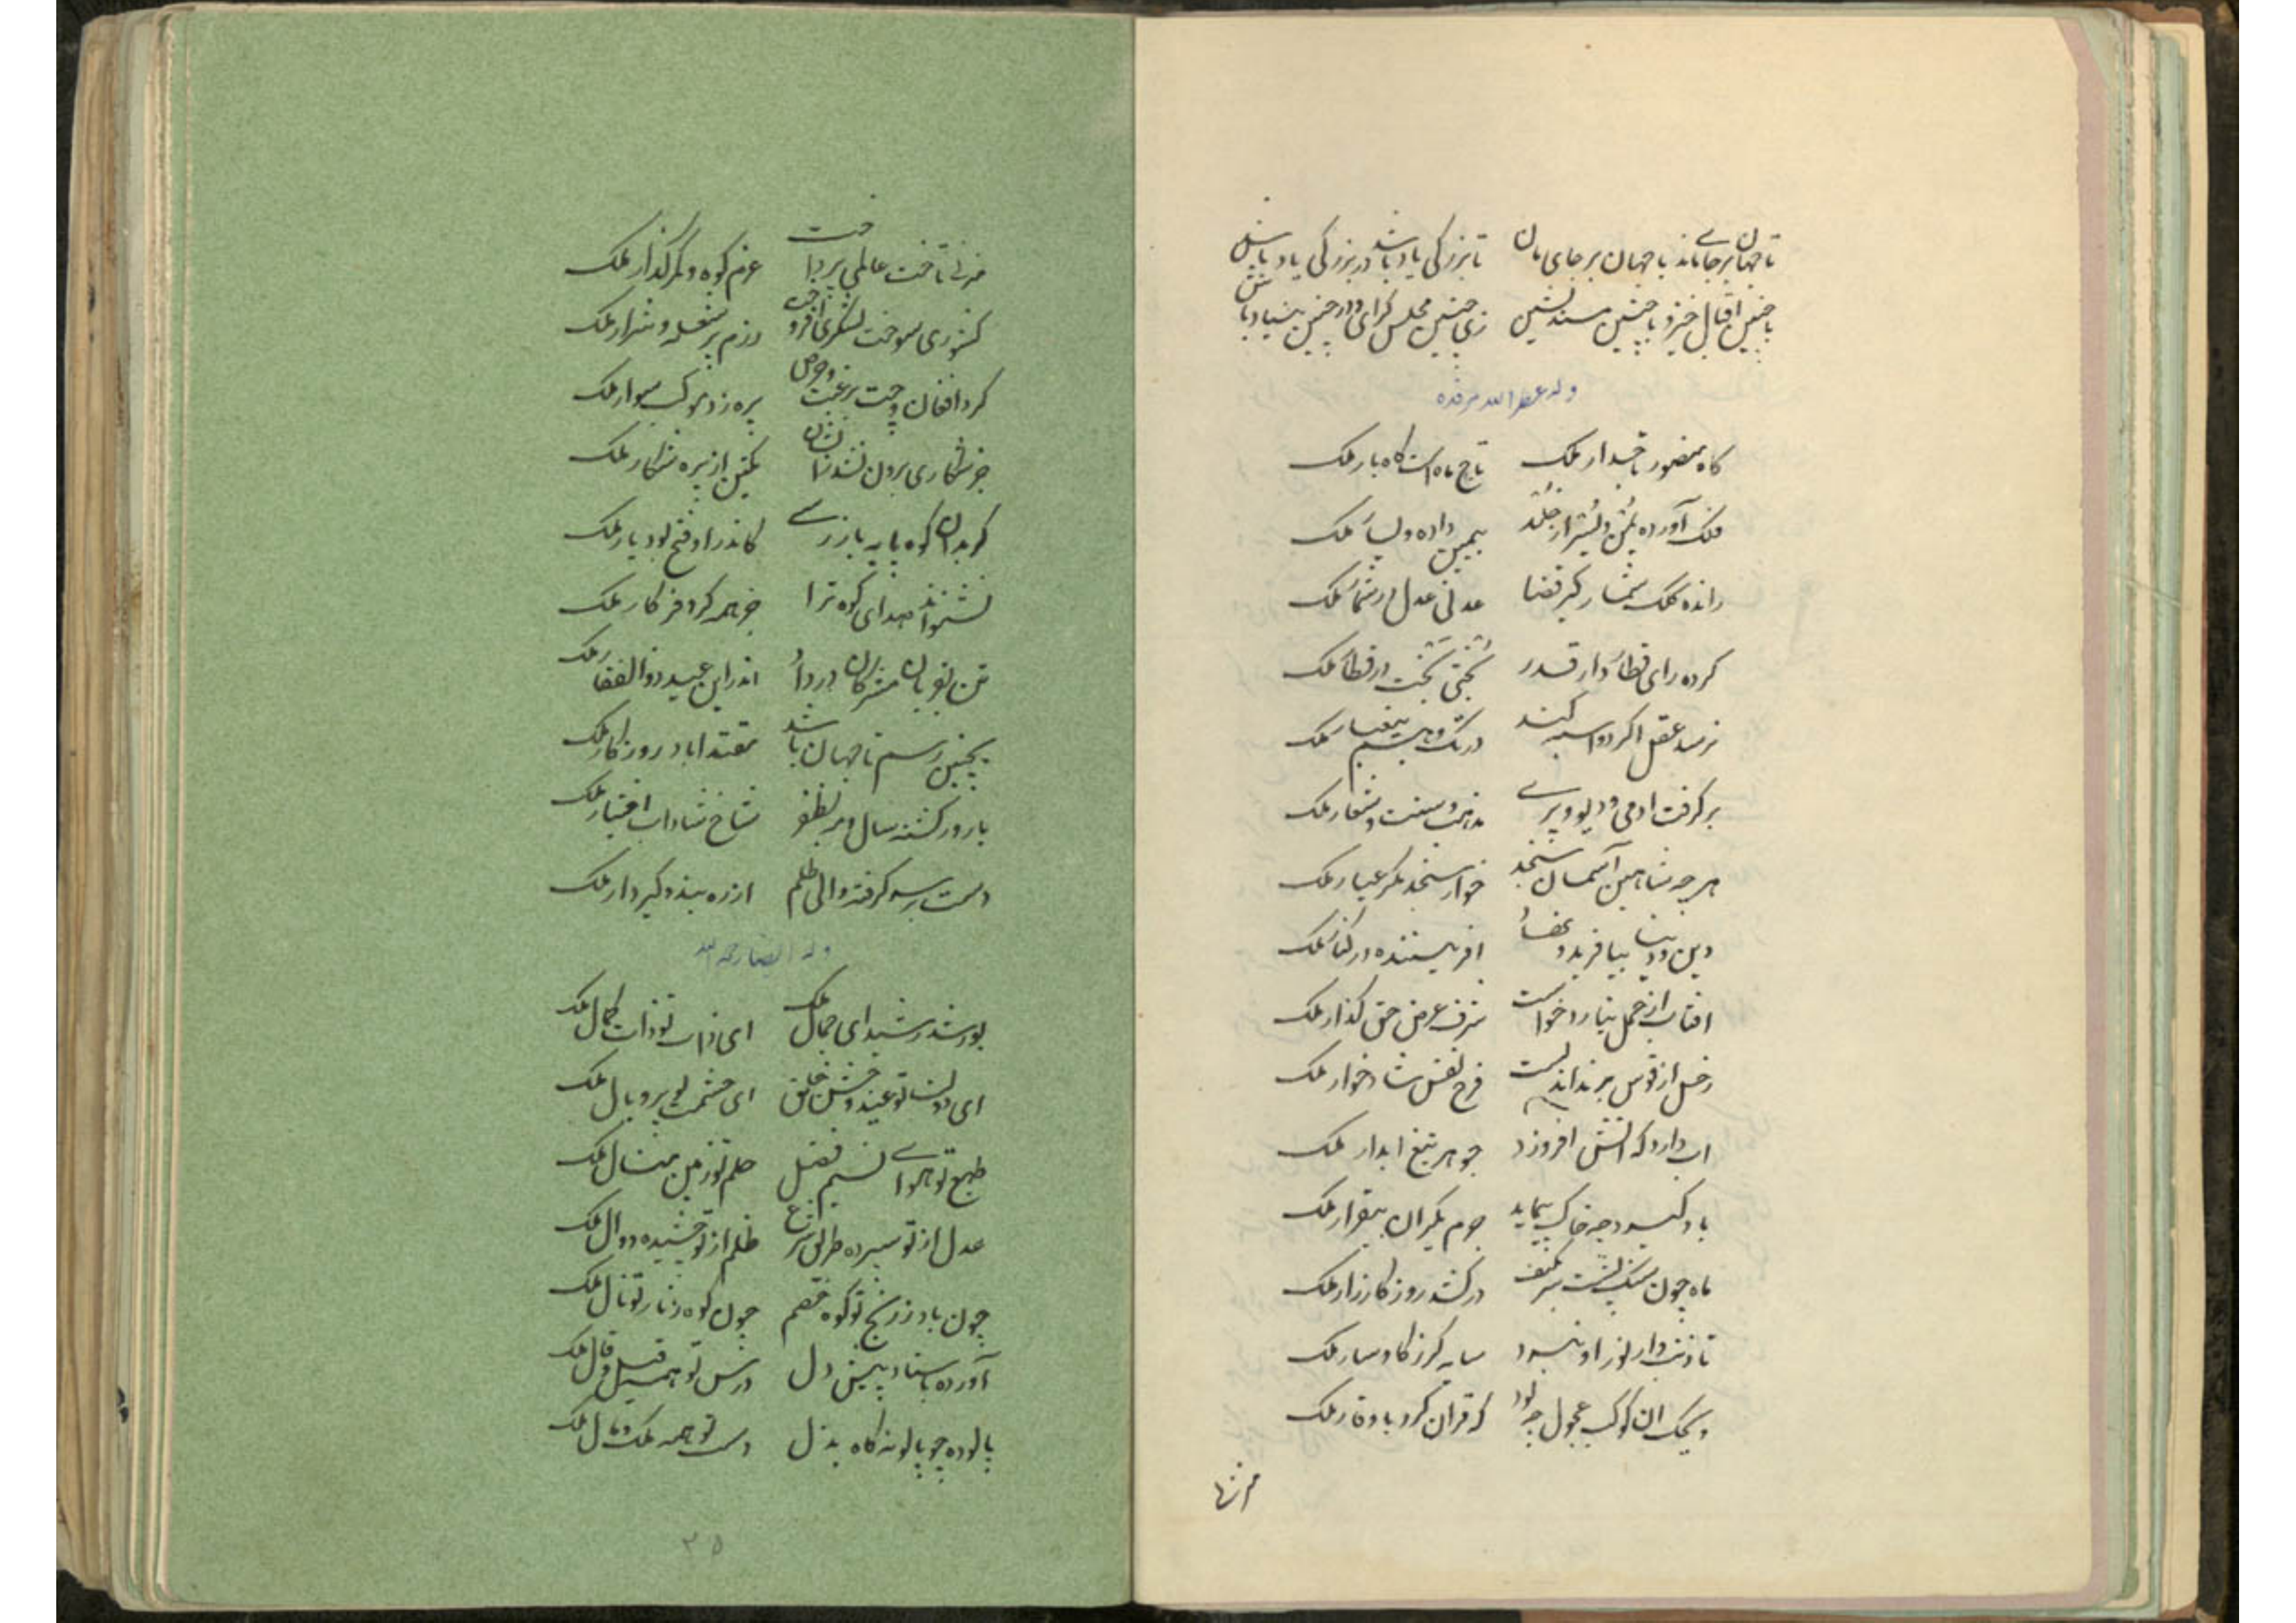 تا جهان بر جا بماند با جهان بر جای مان تا بزرگی یاد باشد در بزرگی یاد باش
با چنین اقبال خیز و با چنین مسند نشین زی چنین مجلس گرای و در چنین بنیاد باش
وله عطر الله مرقده
گاه منصور تاجدار ملک تاج ماه است گاه بار ملک
فلک آورده یمن و یسر از خلد بیمین داده و یسار ملک
رانده کلک شمار گیر قضا عدل در شمار ملک
کرده رای قطار دار قدر بختی بخت در قطار ملک
نرسد عقل اگر دو اسبه کند در تک وهم ملک
برگرفت ادمی و دیو و پری مذهب و سنت و شعار ملک
هر چه شاهین آسمان سنجد خوار سنجد مگر عیار ملک
دین و دنیا بیافرید و افریننده در کنار ملک
افتاب از حمل نیارد خواست شرف عرض حق گذار ملک
زحل از قوس برنداند بست فرح نفس شادخوار ملک
اب دارد که اتش افروزد جوهر تیغ ابدار ملک
باد گیرد چه خاک پیماید جرم یکران بیقرار ملک
ماه چون سنگ پشت سر بکتف درکشد روز کارزار ملک
تا ذنب وار نور او نبرد سایه گرز گاوسار ملک
ویحک ان کوکب عجول چه بود که قران کرد با وقار ملک
عالمی پرداخت عزم کوه و کمر گذار ملک
کشوری سوخت لشکری افروخت رزم پر شعله و شرار ملک
کرد افغان و جست بر غبت و حرص پره زد موکب سوار ملک
جز شکاری برون نشد ز نشان یکتن از پره شکار ملک
گر بدان کوه پایه بازرسی کاندر او فتح بود یار ملک
نشنواند صدای کوه ترا جز همه کرد و فر کار ملک
اندر این عید ذوالفقار ملک
همچنین رسم تا جهان باشد مقتدا باد روزگار ملک
بارور گشته سال و مه بظفر شاخ شاداب اختیار ملک
دست رسم گرفته والی ظلم از ره بند و گیر و دار ملک
وله ایضا رحمه الله
بو رشد رشید ای جمال ملک ای ذات تو ذات کمال ملک
ای دولت تو عید خلق ای حشمت تو پر و بال ملک
طبع تو هوای نسیم فضل حلم تو زمین مثال ملک
عدل از تو سپرده طریق شرع ظلم از تو چشیده دوال ملک
چون باد ز رنج تو کوه خصم چون کوه ملک
آورده باستاد پیش دل درس تو همه قیل و قال ملک
پالوده چو پالونه گاه بذل دست تو همه ملک و مال ملک
۳۵